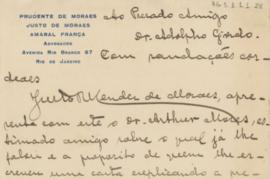 PRUDENTE DE MORAES
JUSTO DE MORAES
AMARAL FRANÇA
ADVOGADOS
AVENIDA RIO BRANCO 87
RIO DE JANEIRO
Ao Presado Amigo
Dr. Adolpho
Com saudações cor
deaes
Justo Mendes de Moraes, apre
senta com este o Dr. Arthur Moses, es
timado amigo sobre o qual já lhe
falou e a proposito de quem lhe es
creveu uma carta explicando a